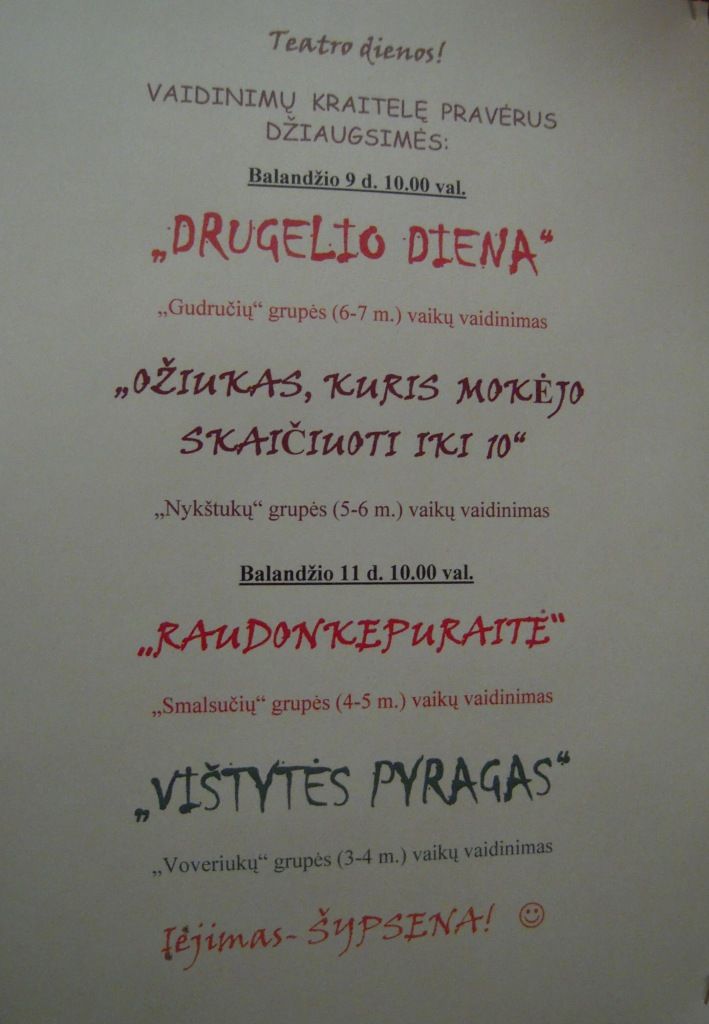 Teatro dienos!
VAIDINIMŲ KRAITELĘ PRAVĖRUS
DŽIAUGSIMĖS:
Balandžio 9 d. 10.00 val.
„DRUGELIO DIENA“
„Gudručių“ grupės (6-7 m.) vaikų vaidinimas
„OŽIUKAS, KURIS MOKĖJO
SKAIČIUOTI IKI 10“
„Nykštukų“ grupės (5-6 m.) vaikų vaidinimas
Balandžio 11 d. 10.00 val.
„RAUDONKEPURAITĖ“
„Smalsučių“ grupės (4-5 m.) vaikų vaidinimas
„VIŠTYTĖS PYRAGAS“
„Voveriukų“ grupės (3-4 m.) vaikų vaidinimas
Įėjimas- ŠYPSENA! ☺